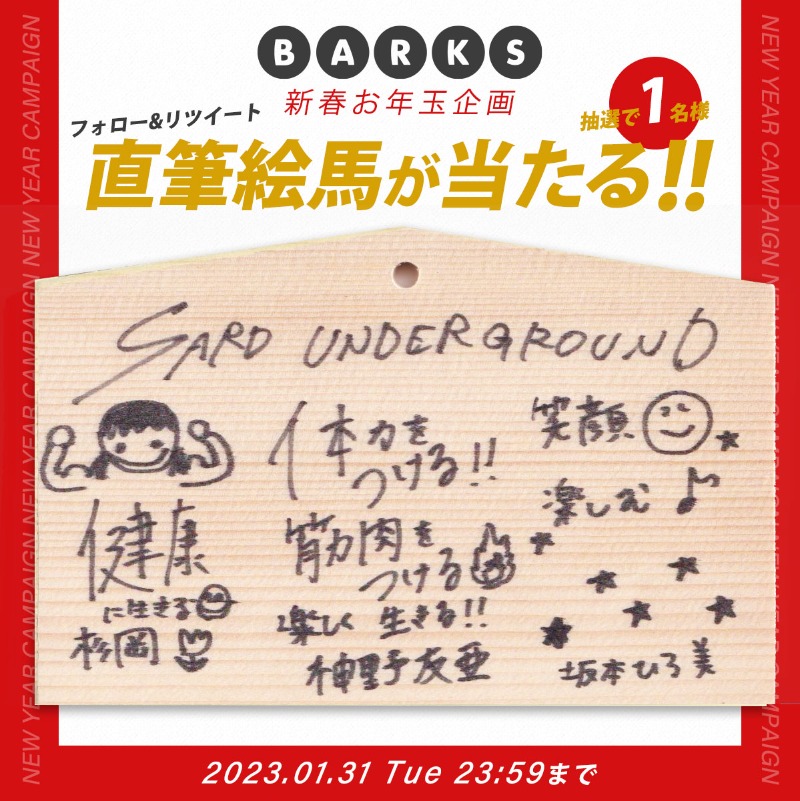 BARKS
新春お年玉企画
フォロー&リツイート
抽選で1名様
直筆絵馬が当たる!!
SARD UNDERGROUND
健康
に生きる
杉岡
体力を
つける!!
筋肉を
つける
楽しく 生きる!!
神野友亜
笑顔
楽しむ♪
坂本ひろ美
NEW YEAR CAMPAIGN NEW YEAR CAMPAIGN NEW YEAR CAMPAIGN NEW YEAR CAMPAIGN
NEW YEAR CAMPAIGN NEW YEAR CAMPAIGN NEW YEAR CAMPAIGN NEW YEAR CAMPAIGN
2023.01.31 Tue 23:59まで